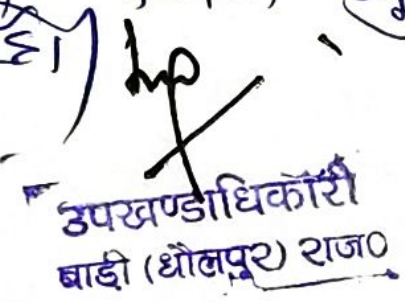 उपखण्डाधिकारी
बाड़ी (धौलपुर) राज०